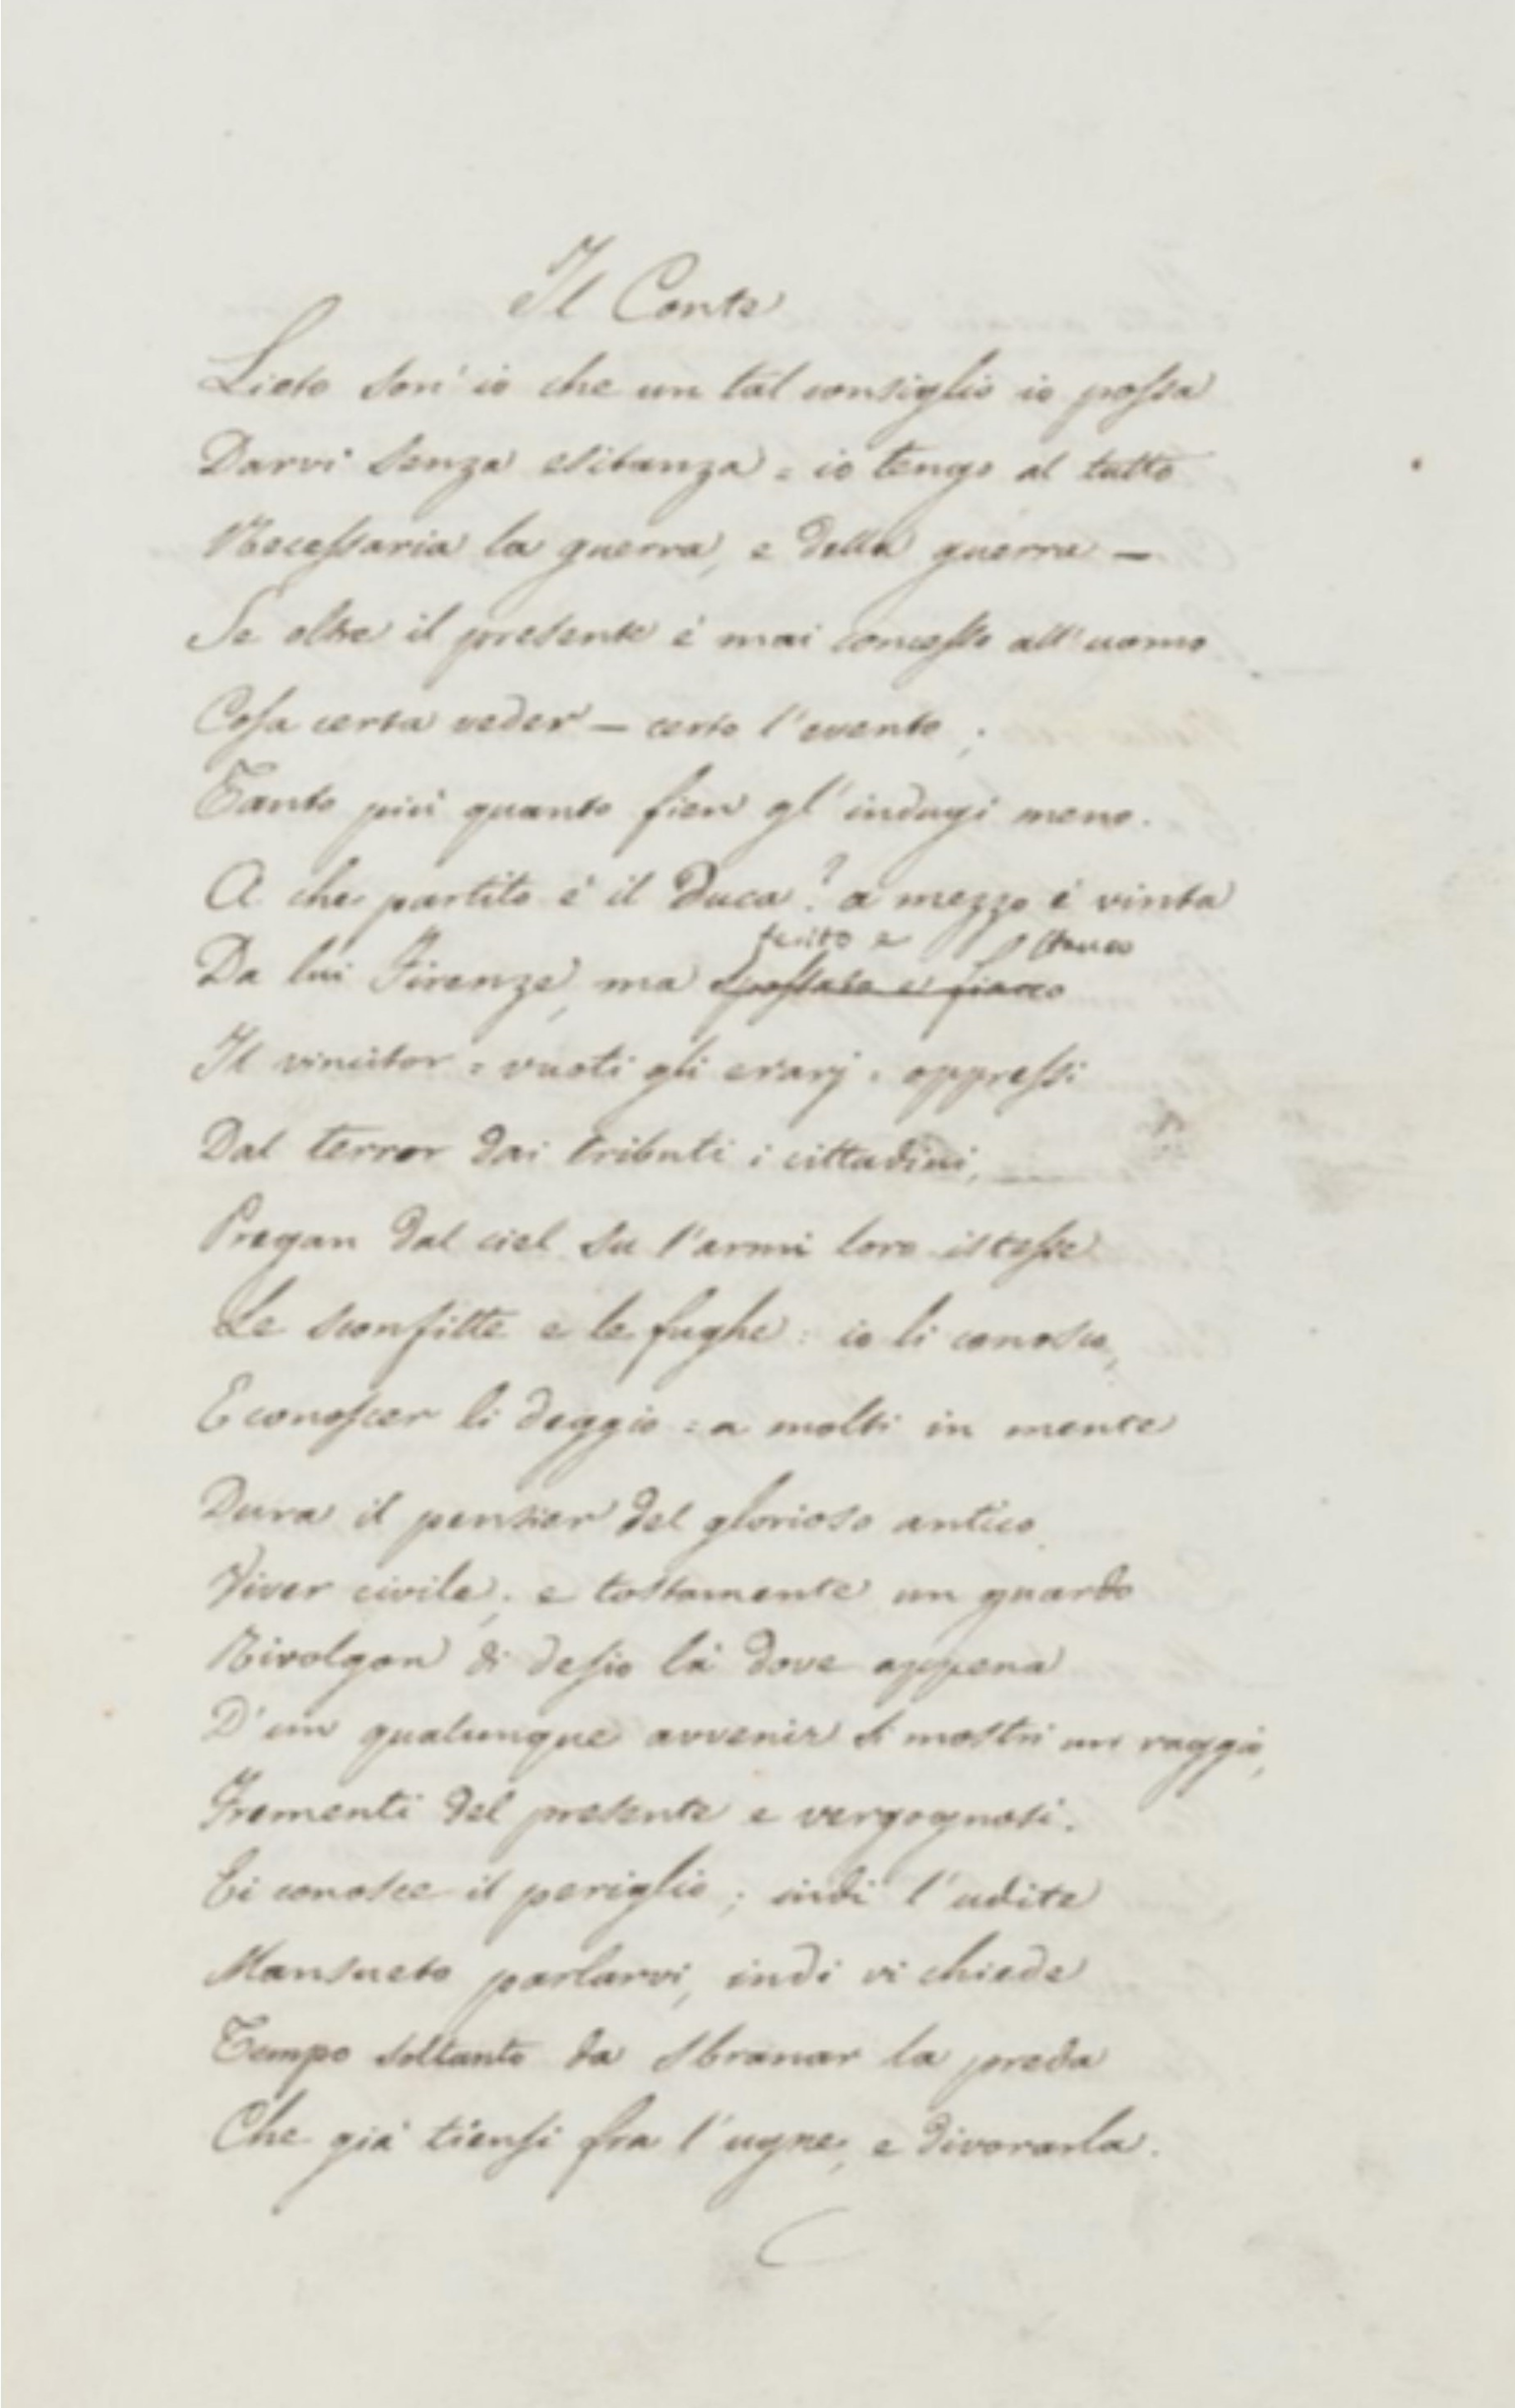 Il Conte
Lieto son' io che un tal consiglio io possa
Darvi senza esitanza = io tengo al tutto
Necessaria la guerra, e della guerra —
Se oltre il presente è mai concesso all'uomo
Cosa certa veder — certo l'evento;
Tanto più quanto fien gl'indugi meno.
A che partito è il Duca? a mezzo è vinta
ferito e stanco
Da lui Firenze, ma spossato e fiacco
Il vincitor = vuoti gli erarj = oppressi
Dal terror dai tributi i cittadini,
Pregan dal ciel su l'armi loro istesse
Le sconfitte e le fughe: io li conosco,
E conoscer li deggio = a molti in mente
Dura il pensier del glorioso antico
Viver civile; e tostamente un guardo
Rivolgon di desio là dove appena
D'un qualunque avvenir si mostri un raggio,
Frementi del presente e vergognosi.
Ei conosce il periglio; indi l'udite
Mansueto parlarvi, indi vi chiede
Tempo soltanto da sbranar la preda
Che già tiensi fra l'ugne, e divorarla.